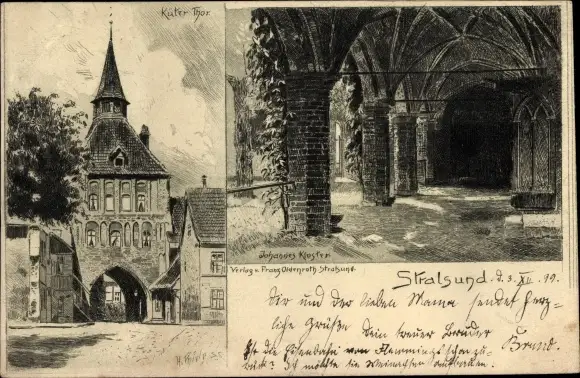 Küter Thor.
Johannes Kloster.
Verlag v. Franz Oldenroth Stralsund.
Stralsund. d. 3. XII. 99.
Dir und der lieben Mama sendet herz-
liche Grüße Dein treuer Bruder
Bruno.
Ist die von
ich möchte sie Weihnachten